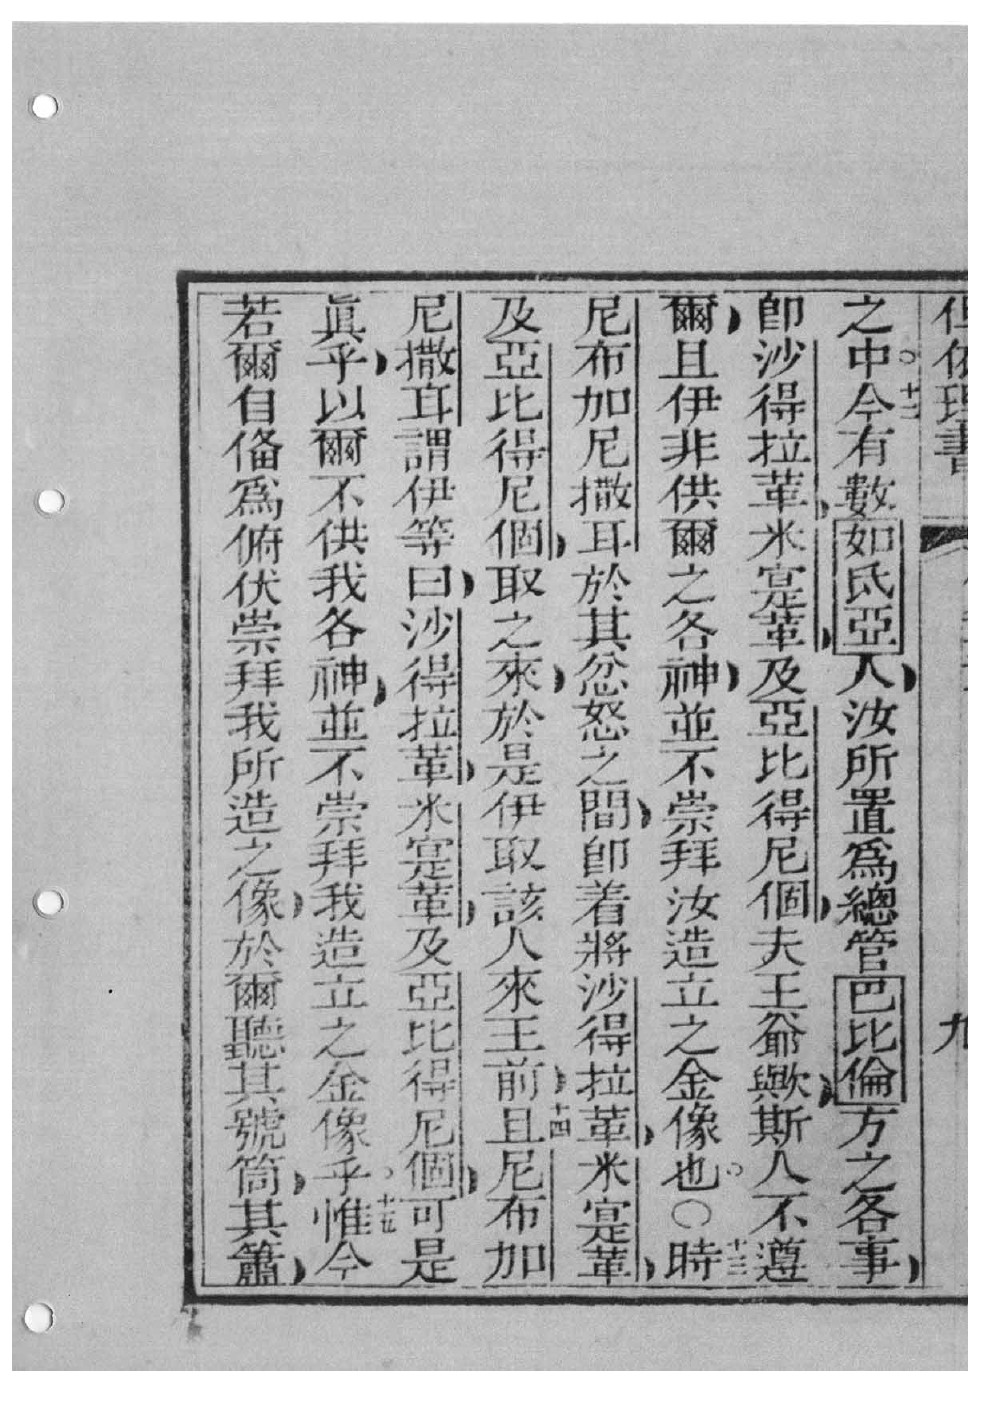 但依理書 九
之中。十二今有數如氐亞人汝所置爲總管巴比倫方之各事
卽沙得拉革米寔革及亞比得尼個夫王爺歟斯人不遵
爾且伊非供爾之各神並不崇拜汝造立之金像也。〇十三時
尼布加尼撒耳於其忿怒之間卽着將沙得拉革米寔革
及亞比得尼個取之來於是伊取該人來王前十四且尼布加
尼撒耳謂伊等曰沙得拉革米寔革及亞比得尼個可是
眞乎以爾不供我各神並不崇拜我造立之金像乎。十五惟今
若爾自俻爲俯伏崇拜我所造之像於爾聽其號筒其簫